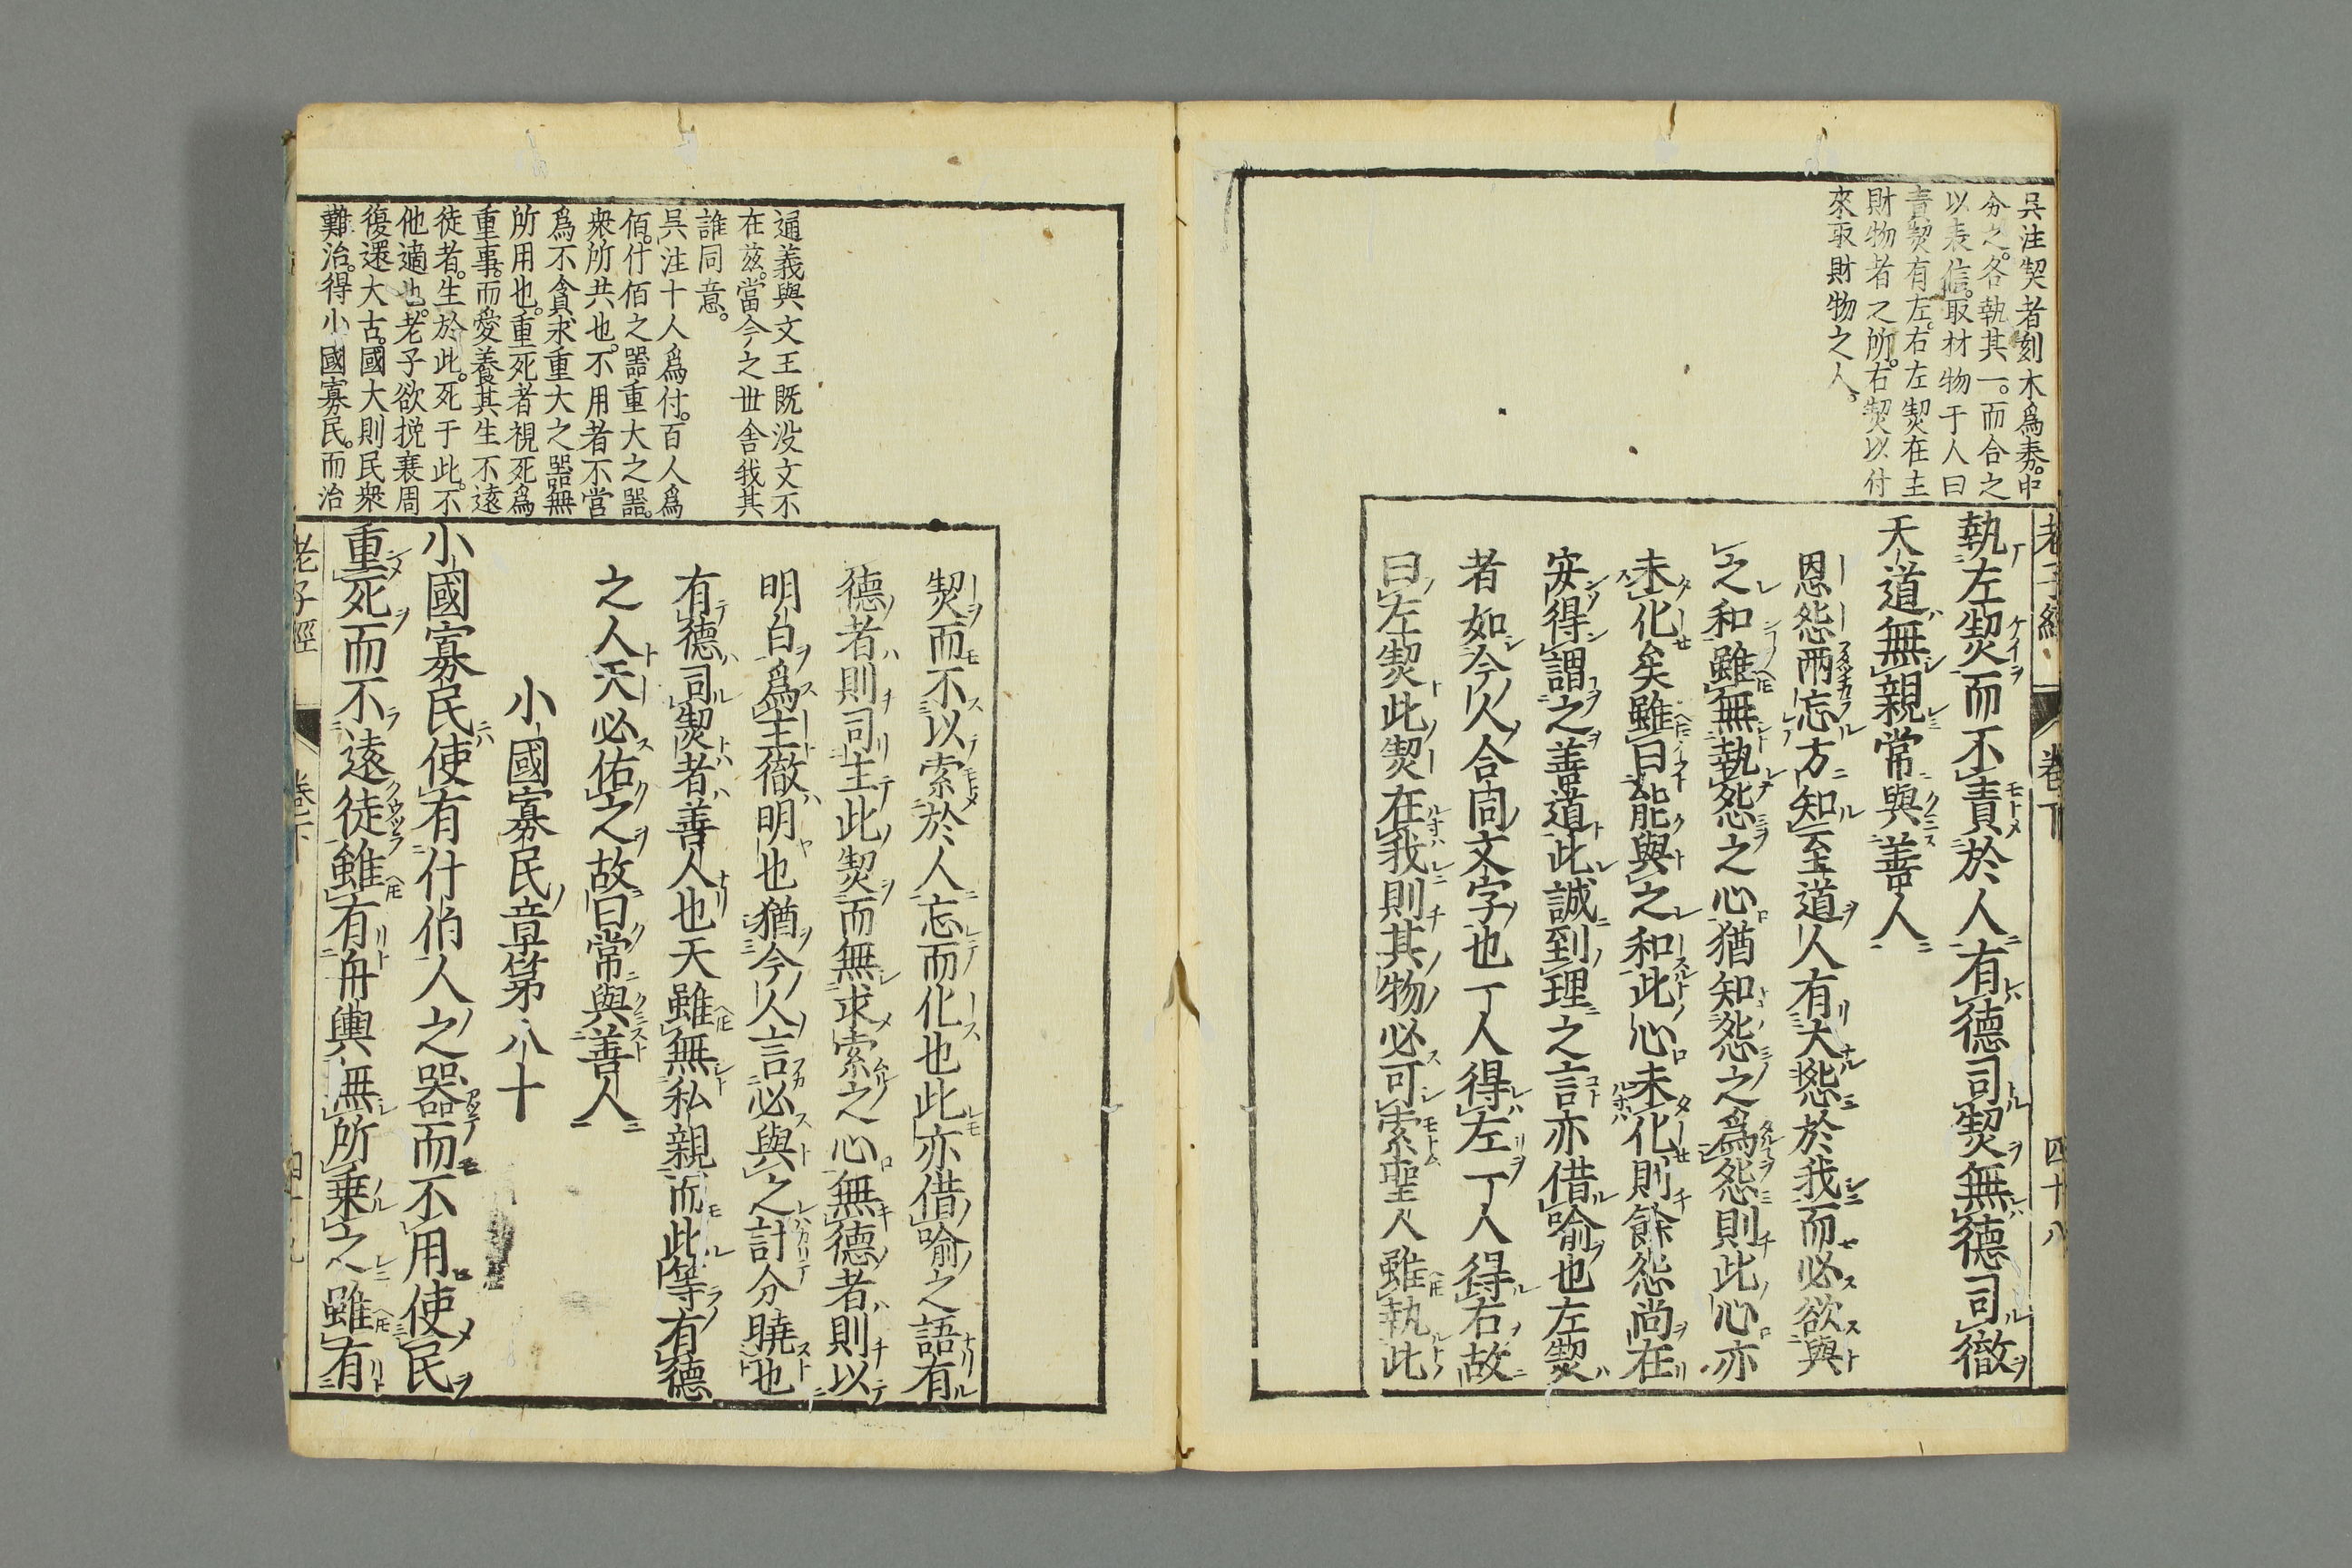 呉注契者刻木爲券中
分之各執其一而合之
以表信取材物于人曰
責契有左右左契在主
財物者之所右契以付
來取財物之人
老子經
卷下
四十八
執左契而不責於人有德司契無德司徹
天道無親常與善人
恩怨兩忘方知至道人有大怨於我而必欲與
之和雖無執怨之心猶知怨之爲怨則此心亦
未化矣雖曰能與之和此心未化則餘怨尚在
安得謂之善道此誠到理之言亦借喻也左契
者如今人合同文字也一人得左一人得右故
曰左契此契在我則其物必可索聖人雖執此
通義與文王既没文不
在兹當今之世舍我其
誰同意
呉注十人爲什百人爲
佰什佰之器重大之器
衆所共也不用者不営
爲不貪求重大之器無
所用也重死者視死爲
重事而愛養其生不遠
徒者生於此死于此不
他適也老子欲挽衰周
復還大古國大則民衆
難治得小國寡民而治
契而不以索於人忘而化也此亦借喻之語有
德者則司主此契而無求索之心無德者則以
明白爲主徹明也猶今人言必與之計分曉也
有德司契者善人也天雖無私親而此等有德
之人天必佑之故曰常與善人
小國寡民章第八十
小國寡民使有什伯人之器而不用使民
重死而不遠徒雖有舟輿無所乗之雖有
老子經
卷下
四十九